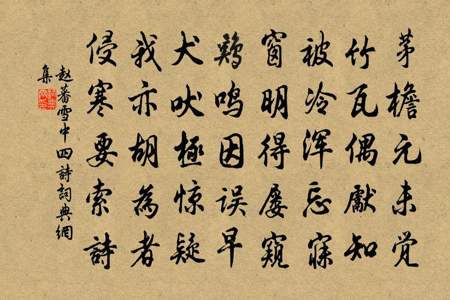 茅檐元未觉
竹瓦偶獻知
被冷浑忘寐
窗明得屡窥
鷄鳴因误早
犬吠極惊疑
我亦胡為者
侵寒要索詩
赵蕃雪中四詩詞典網
集